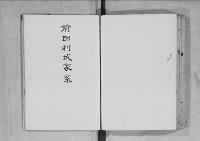 前田利武家系